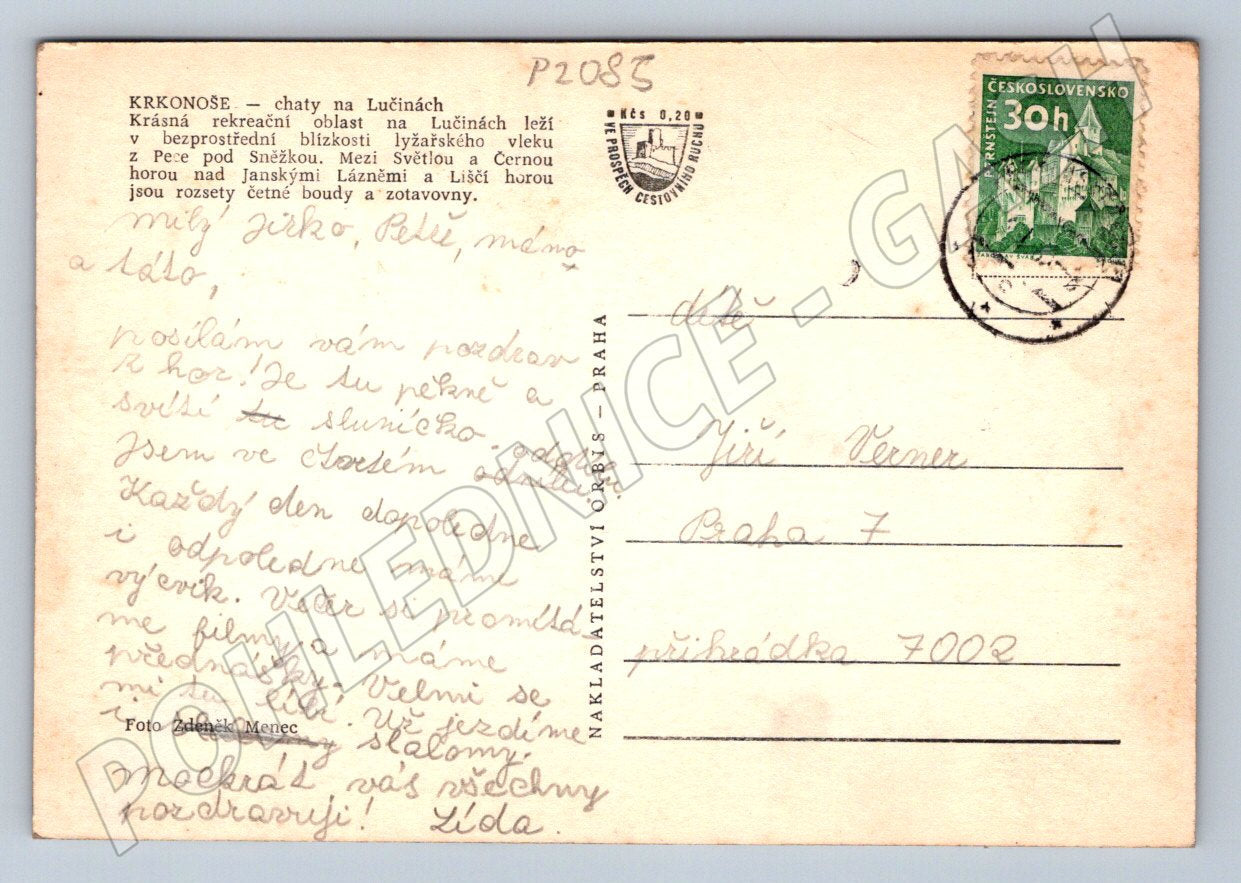 P2085
KRKONOŠE — chaty na Lučinách
Krásná rekreační oblast na Lučinách leží
v bezprostřední blízkosti lyžařského vleku
z Pece pod Sněžkou. Mezi Světlou a Černou
horou nad Janskými Lázněmi a Liščí horou
jsou rozsety četné boudy a zotavovny.
Kčs 0,20
VE PROSPĚCH CESTOVNÍHO RUCHU
ČESKOSLOVENSKO
30h
PERNŠTEJN
milý Jirko, Petře, mámo
a táto,
posílám vám pozdrav
z hor! Je tu pěkně a
svítí tu sluníčko.
Jsem ve čtvrtém
Každý den dopoledne
i odpoledne máme
výcvik. Večer se promítá-
me filmy a máme
přednášky. Velmi se
mi tu líbí. Už jezdíme
i slalomy.
Mockrát vás všechny
pozdravuji! Lída.
Foto Zdeněk Menec
NAKLADATELSTVÍ ORBIS — PRAHA
Jiří Verner
Praha 7
přihrádka 7002
POHLEDNICE - GACH